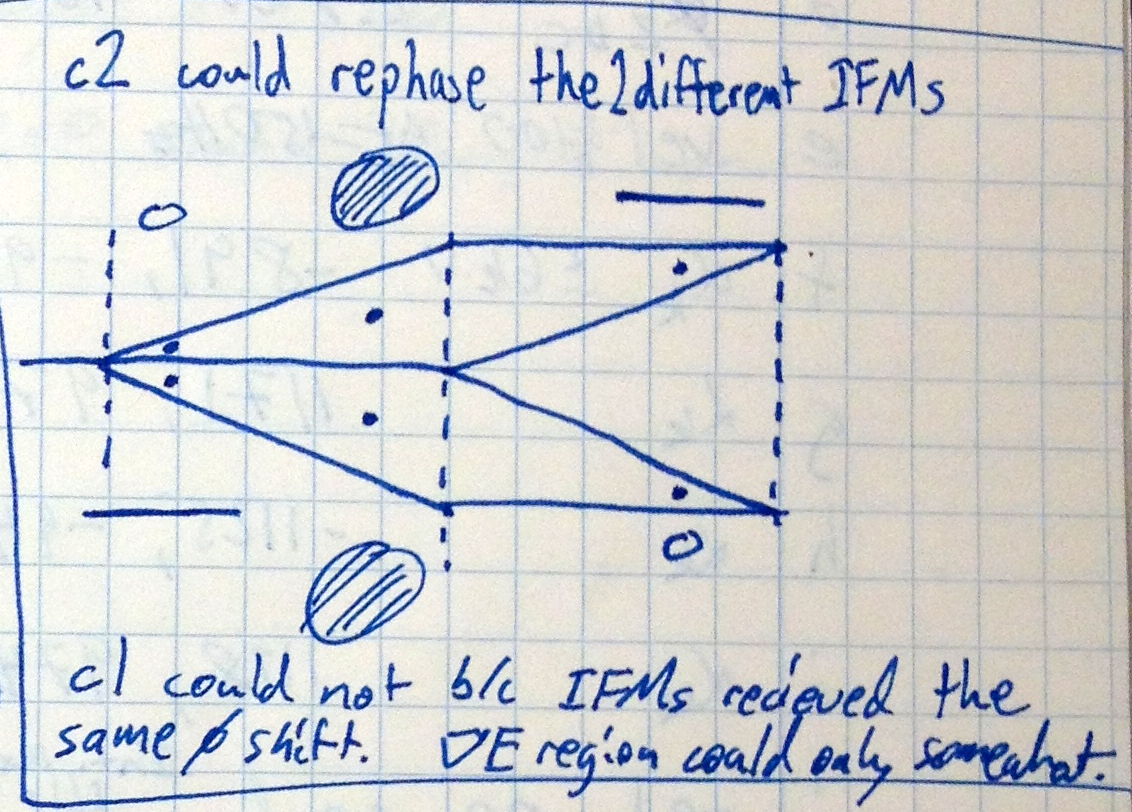 c2 could rephase the 2 different IFMs
c1 could not b/c IFMs recieved the
same ϕ shift. ∇E region could only somewhat.